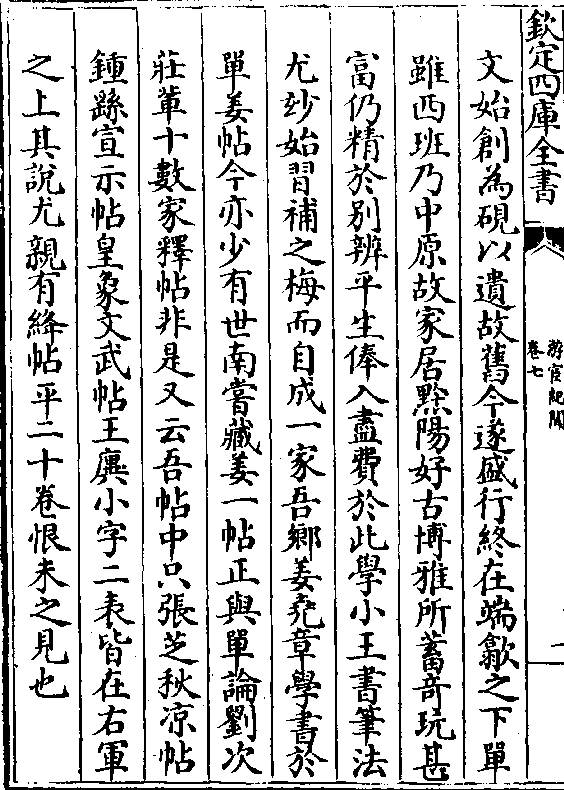 欽定四庫全書
游宦紀聞
卷七
二
文始創為硯以遺故舊今遂盛行終在端歙之下單
雖西班乃中原故家居黔陽好古博雅所蓄奇玩甚
富仍精於別辨平生俸入盡費於此學小王書筆法
尤妙始習補之梅而自成一家吾鄉姜堯章學書於
單姜帖今亦少有世南嘗藏姜一帖正與單論劉次
莊輩十數家釋帖非是又云吾帖中只張芝秋凉帖
鍾繇宣示帖皇象文武帖王廙小字二表皆在右軍
之上其說尤親有絳帖平二十卷恨未之見也